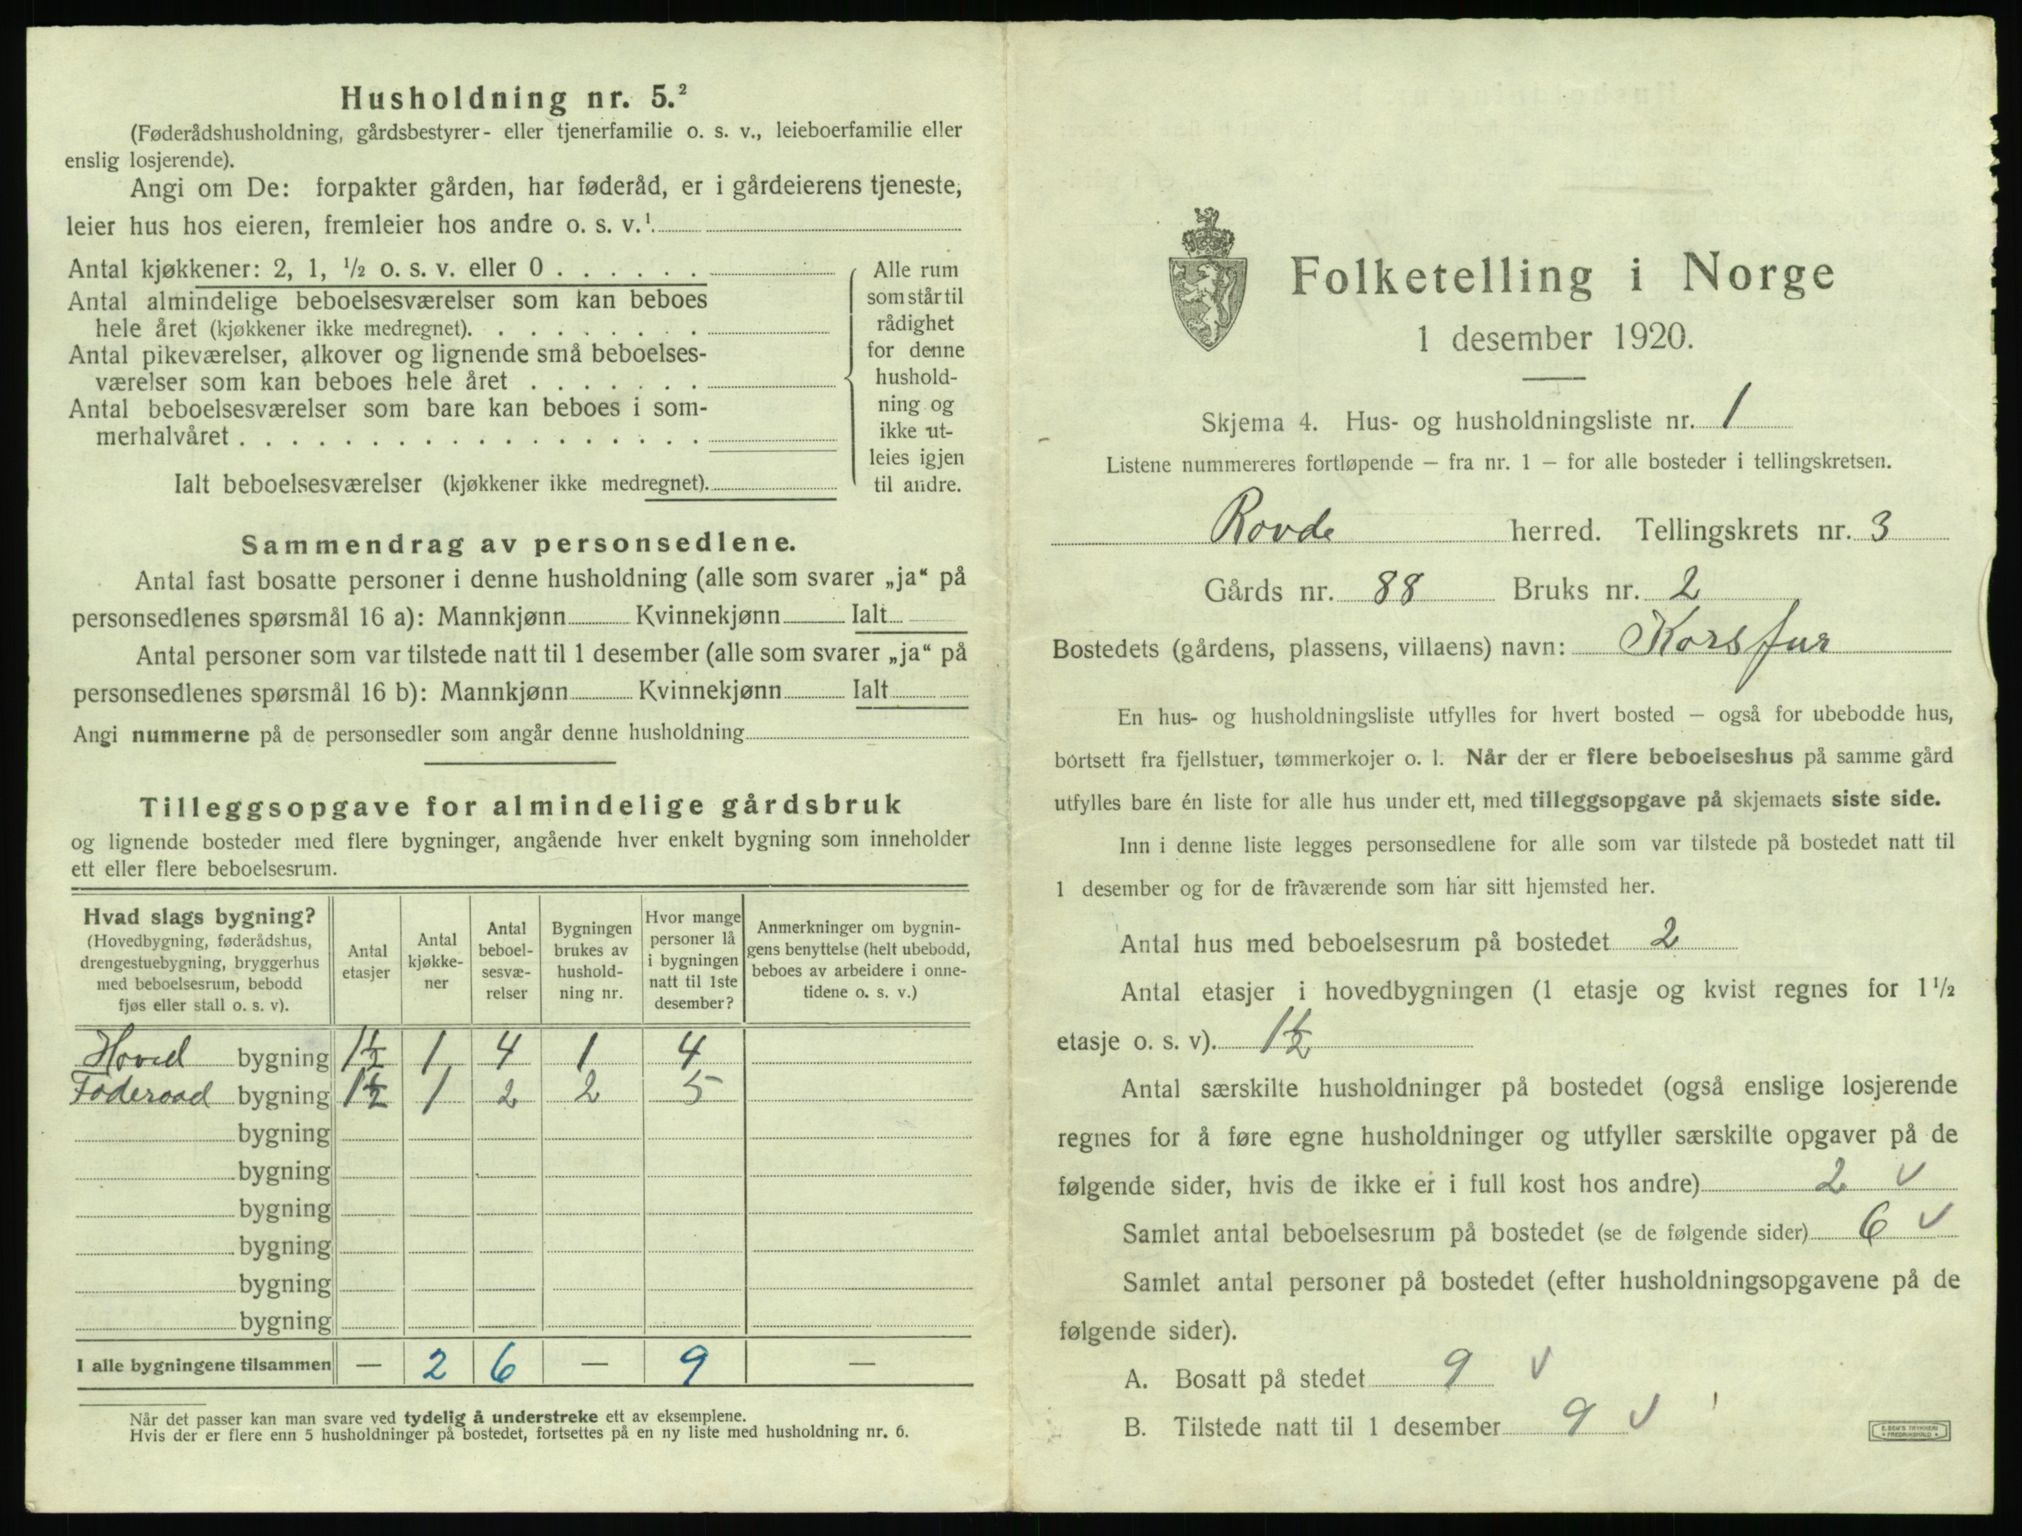 Husholdning nr. 5.²
(Føderådshusholdning, gårdsbestyrer- eller tjenerfamilie o. s. v., leieboerfamilie eller
enslig losjerende).
Angi om De: forpakter gården, har føderåd, er i gårdeierens tjeneste,
leier hus hos eieren, fremleier hos andre o. s. v.¹
Antal kjøkkener: 2, 1, ½ o. s. v. eller 0
Antal almindelige beboelsesværelser som kan beboes
hele året (kjøkkener ikke medregnet).
Antal pikeværelser, alkover og lignende små beboelses-
værelser som kan beboes hele året
Antal beboelsesværelser som bare kan beboes i som-
merhalvåret
Ialt beboelsesværelser (kjøkkener ikke medregnet).
Alle rum
som står til
rådighet
for denne
hushold-
ning og
ikke ut-
leies igjen
til andre.
Sammendrag av personsedlene.
Antal fast bosatte personer i denne husholdning (alle som svarer „ja“ på
personsedlenes spørsmål 16 a): Mannkjønn Kvinnekjønn Ialt
Antal personer som var tilstede natt til 1 desember (alle som svarer „ja“ på
personsedlenes spørsmål 16 b): Mannkjønn Kvinnekjønn Ialt
Angi nummerne på de personsedler som angår denne husholdning
Tilleggsopgave for almindelige gårdsbruk
og lignende bosteder med flere bygninger, angående hver enkelt bygning som inneholder
ett eller flere beboelsesrum.
Hvad slags bygning?
(Hovedbygning, føderådshus,
drengestuebygning, bryggerhus
med beboelsesrum, bebodd
fjøs eller stall o. s. v).
Antal
etasjer
Antal
kjøkke-
ner
Antal
beboel-
sesvæ-
relser
Bygningen
brukes av
hushold-
ning nr.
Hvor mange
personer lå
i bygningen
natt til 1ste
desember?
Anmerkninger om bygnin-
gens benyttelse (helt ubebodd,
beboes av arbeidere i onne-
tidene o. s. v.)
Hoved bygning 1½ 1 4 1 4
Føderaad bygning 1½ 1 2 2 5
bygning
bygning
bygning
bygning
bygning
bygning
I alle bygningene tilsammen — 2 6 — 9 —
Når det passer kan man svare ved tydelig å understreke ett av eksemplene.
Hvis der er flere enn 5 husholdninger på bostedet, fortsettes på en ny liste med husholdning nr. 6.
Folketelling i Norge
1 desember 1920.
Skjema 4. Hus- og husholdningsliste nr. 1
Listene nummereres fortløpende — fra nr. 1 — for alle bosteder i tellingskretsen.
Rovde herred. Tellingskrets nr. 3
Gårds nr. 88 Bruks nr. 2
Bostedets (gårdens, plassens, villaens) navn: Korsfur
En hus- og husholdningsliste utfylles for hvert bosted — også for ubebodde hus,
bortsett fra fjellstuer, tømmerkojer o. l. Når der er flere beboelseshus på samme gård
utfylles bare én liste for alle hus under ett, med tilleggsopgave på skjemaets siste side.
Inn i denne liste legges personsedlene for alle som var tilstede på bostedet natt til
1 desember og for de fraværende som har sitt hjemsted her.
Antal hus med beboelsesrum på bostedet 2
Antal etasjer i hovedbygningen (1 etasje og kvist regnes for 1½
etasje o. s. v). 1½
Antal særskilte husholdninger på bostedet (også enslige losjerende
regnes for å føre egne husholdninger og utfyller særskilte opgaver på de
følgende sider, hvis de ikke er i full kost hos andre) 2 v
Samlet antal beboelsesrum på bostedet (se de følgende sider) 6 v
Samlet antal personer på bostedet (efter husholdningsopgavene på de
følgende sider).
A. Bosatt på stedet 9 v
B. Tilstede natt til 1 desember 9 v